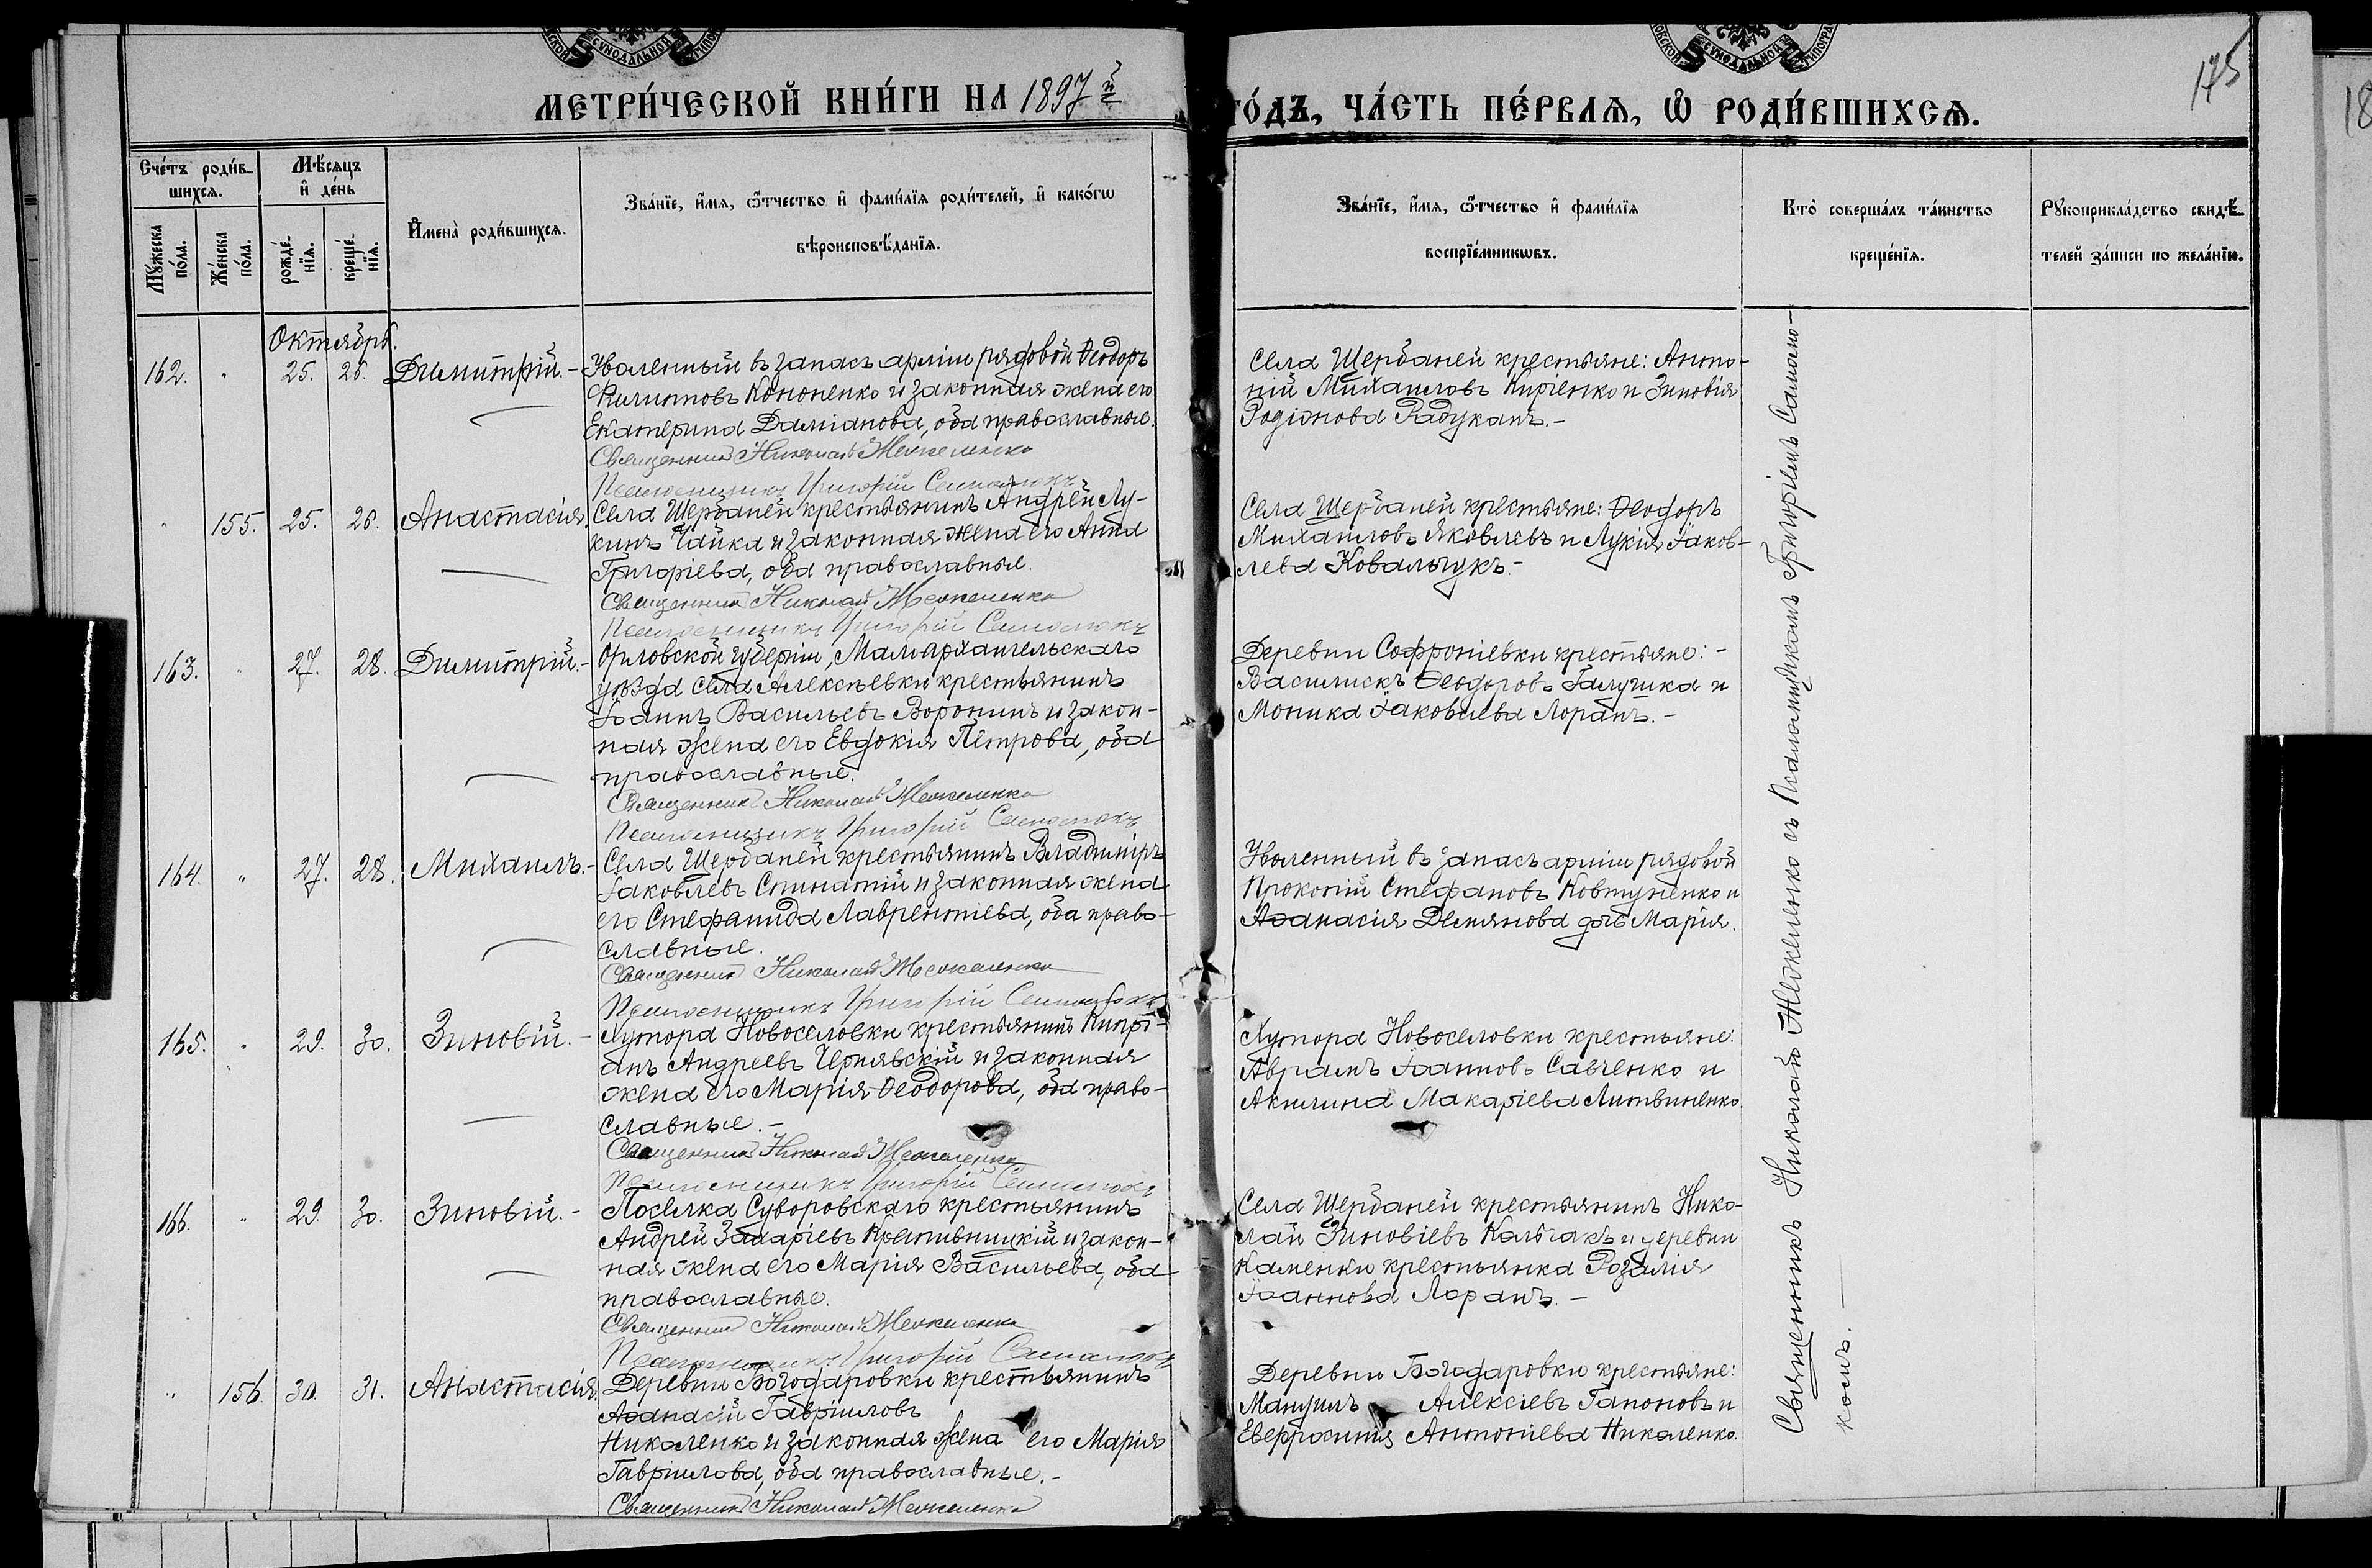 МЕТРИ́ЧЕСКОЙ КНИ́ГИ НА 1897 й ГО́ДЪ, ЧА́СТЬ ПЕ́РВАЯ, Ѡ РОДИ́ВШИХСЯ.
175
Сче́тъ роди́в-
шихся.
Мѣ́сяцъ
и де́нь
Му́жеска по́ла.
Же́нска по́ла.
рожде́-
нїя.
креще́-
нїя.
Имена̀ роди́вшихся.
Зва́нїе, и́мя, ѻ҆́тчество и фами́лїя роди́телей, и како́гѡ
вѣроисповѣ́данїя.
Зва́нїе, и́мя, ѻ҆́тчество и фами́лїя
воспрїе́мникѡвъ.
Кто̀ соверша́лъ та́инство
креще́нїя.
Рукоприкла́дство свидѣ́-
телей за́писи по жела́нїю.
Октябрь.
162. " 25. 26. Димитрій. -
Уволенный въ запасъ арміи рядовой Ѳеодоръ
Филипповъ Кононенко и законная жена его
Екатерина Даміанова, оба православные.
Священникъ Николай
Псаломщикъ Григорій
Села Щербаней крестьяне: Анто-
ній Михаиловъ Кириенко и Зиновія
Родіонова Радуканъ. -
" 155. 25. 26. Анастасія
Села Щербаней крестьянинъ Андрей Лу-
кинъ Чайка и законная жена его Анна
Григоріева, оба православные.
Священникъ Николай
Псаломщикъ Григорій
Села Щербаней крестьяне: Ѳеодоръ
Михаиловъ Яковлевъ и Лукія Іаков-
лева Ковальчукъ. -
163. " 27. 28. Димитрій. -
Орловской губерніи, Малоархангельскаго
уѣзда села Алексѣевки крестьянинъ
Іоаннъ Васильевъ Воронинъ и закон-
ная жена его Евдокія Петрова, оба
православные.
Священникъ Николай
Псаломщикъ Григорій
Деревни Софроніевки крестьяне: -
Василискъ Ѳеодоровъ Галушка и
Моника Іаковлева Лоранъ. -
164. " 27. 28. Михаилъ. -
Села Щербаней крестьянинъ Владиміръ
Іаковлевъ и законная жена
его Стефанида Лаврентіева, оба право-
славные.
Священникъ Николай
Псаломщикъ Григорій
Уволенный въ запасъ арміи рядовой
Прокопій Стефановъ Ковтуненко и
Аѳанасія Демянова дочь Марія.
165. " 29. 30. Зиновій. -
Хутора Новоселовки крестьянинъ Кипрі-
анъ Андреевъ Чернявскій и законная
жена его Марія Ѳеодорова, оба право-
славные. -
Священникъ Николай
Псаломщикъ Григорій
Хутора Новоселовки крестьяне:
Аврамъ Іоанновъ Савченко и
Акилина Макаріева Литвиненко.
166. " 29. 30. Зиновій. -
Поселка Суворовскаго крестьянинъ
Андрей Захаріевъ Кропивницкій и закон-
ная жена его Марія Васильева, оба
православные.
Священникъ Николай
Псаломщикъ Григорій
Села Щербаней крестьянинъ Нико-
лай Зиновіевъ Колбчакъ и деревни
Каменки крестьянка Розалія
Іоаннова Лоранъ. -
" 156. 30. 31. Анастасія.
Деревни Богодаровки крестьянинъ
Аѳанасій Гавріиловъ
Николенко и законная жена его Марія
Гавріилова, оба православные. -
Священникъ Николай
Деревни Богодаровки крестьяне:
Мануилъ Алексіевъ Гапоновъ и
Евфросинія Антоніева Николенко.
Священникъ Николай съ Псаломщикомъ Григоріемъ